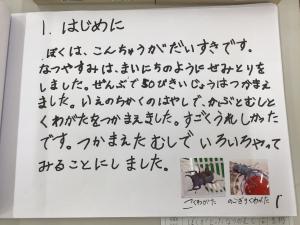 1. はじめに
ぼくは、こんちゅうがだいすきです。
なつやすみは、まいにちのようにせみとりを
しました。ぜんぶで80ぴきいじょうはつかまえ
ました。いえのちかくのはやしで、かぶとむしと
くわがたをつかまえました。すごくうれしかった
です。つかまえたむしでいろいろやって
みることにしました。
こくわがた のこぎりくわがた
1